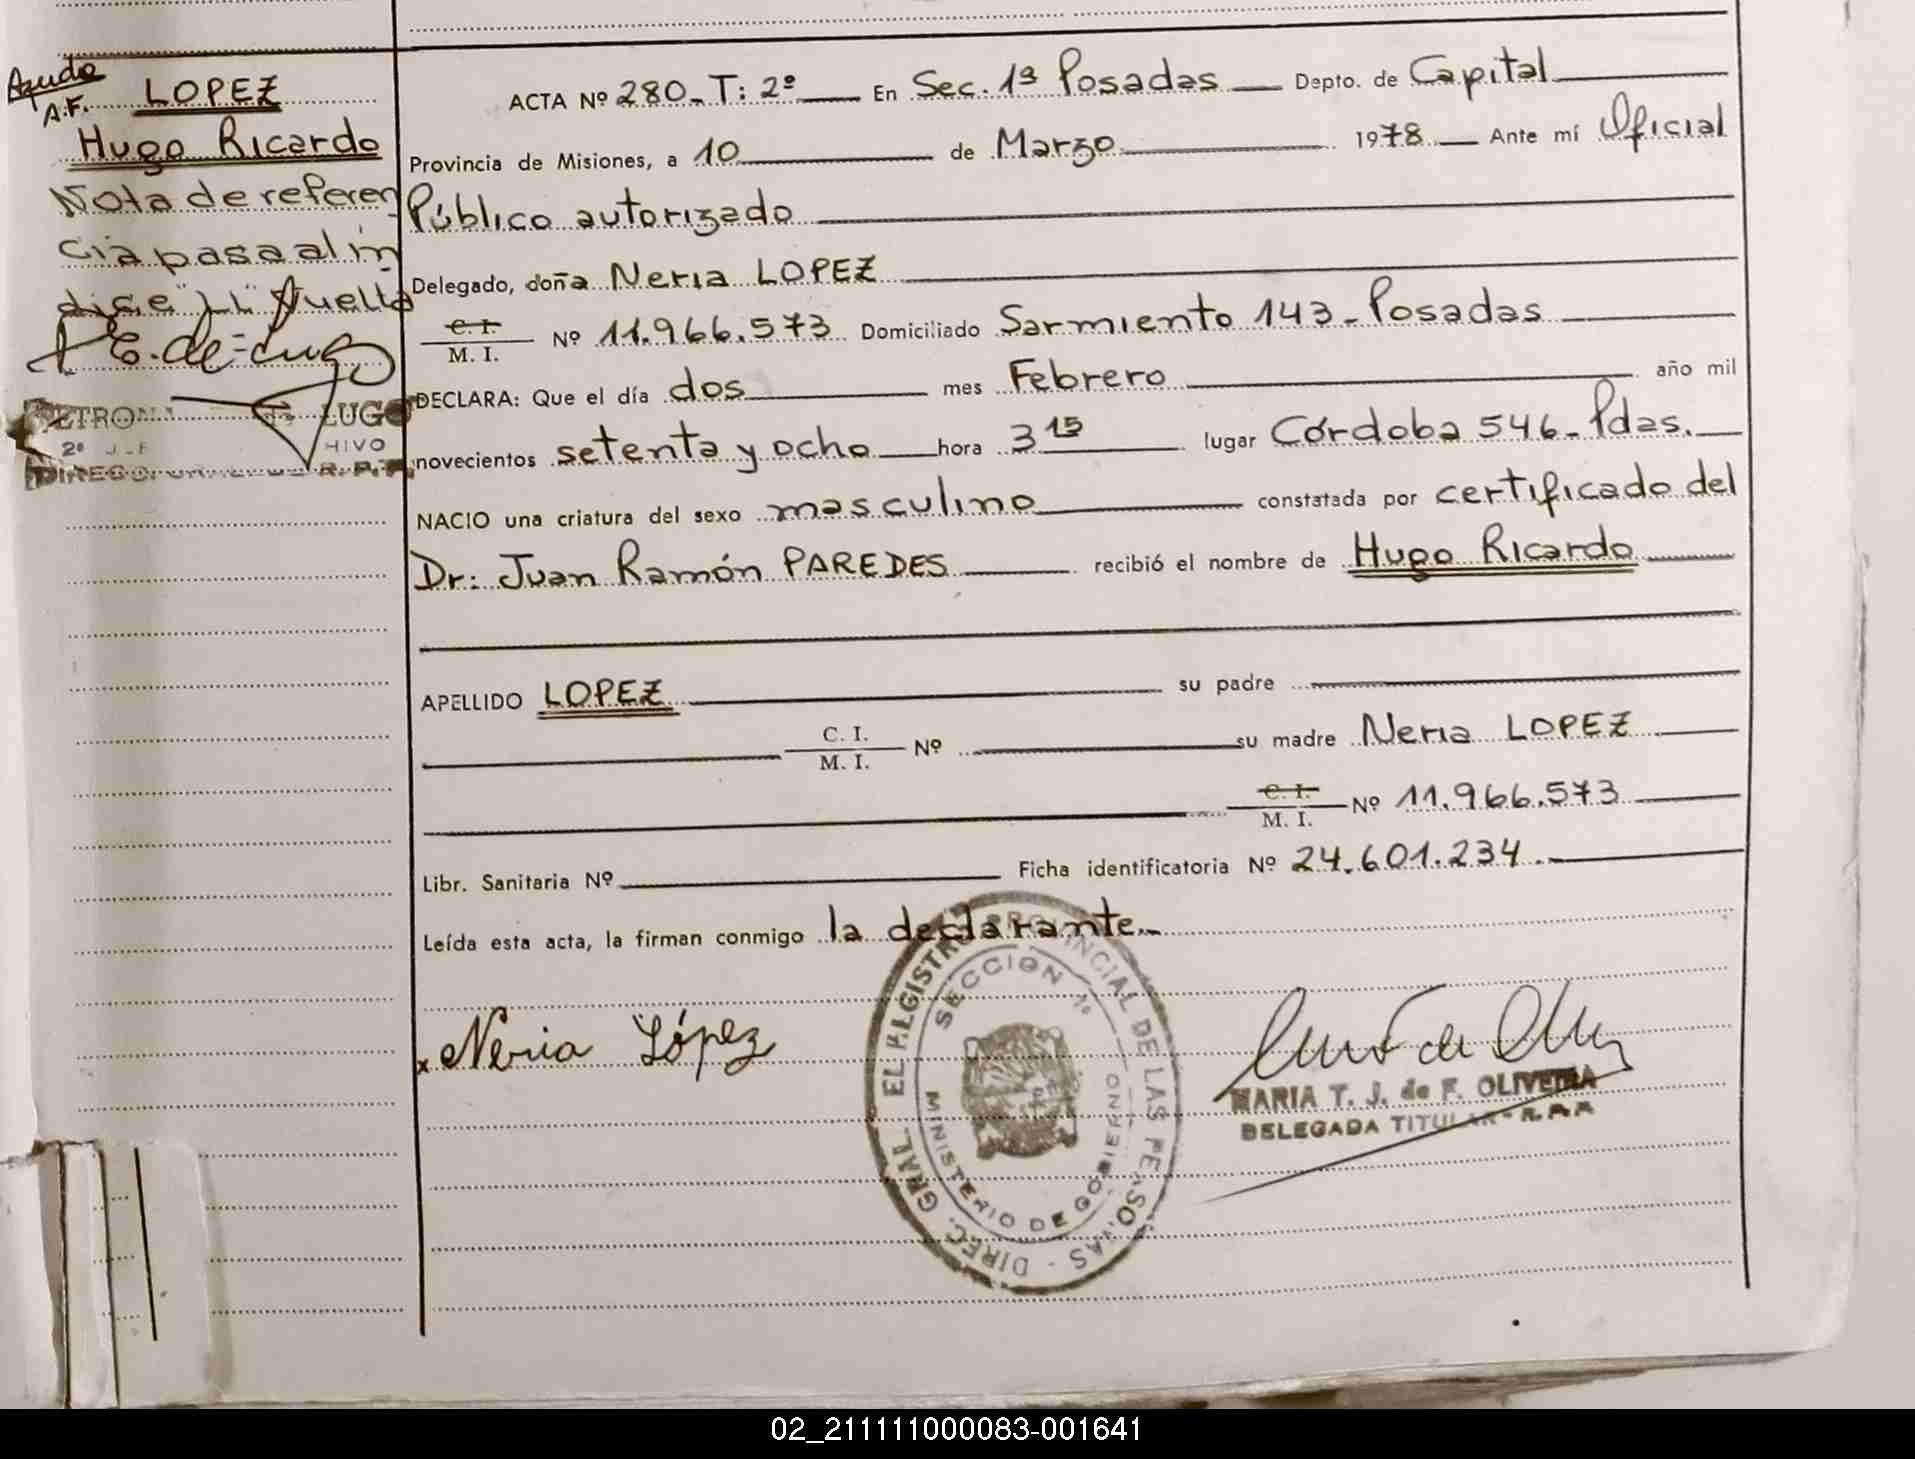 Ayuda
A.F.
LOPEZ
Hugo Ricardo
Nota de referen
cia pasa al ín
dice "LL" Vuelta
E. de Lugo
LUGO
2º
HIVO
R.P.P.
ACTA Nº 280-T: 2º En Sec. 1ª Posadas Depto. de Capital
Provincia de Misiones, a 10 de Marzo 1978 Ante mí Oficial
Público autorizado
Delegado, doña Neria LOPEZ
C. I.
M. I. Nº 11.966.573 Domiciliado Sarmiento 143-Posadas
DECLARA: Que el día dos mes Febrero año mil
novecientos setenta y ocho hora 3 15 lugar Córdoba 546-Pdas.
NACIO una criatura del sexo masculino constatada por certificado del
Dr: Juan Ramón PAREDES recibió el nombre de Hugo Ricardo
APELLIDO LOPEZ su padre
C. I.
M. I. Nº su madre Neria LOPEZ
C. I.
M. I. Nº 11.966.573
Libr. Sanitaria Nº Ficha identificatoria Nº 24.601.234.
Leída esta acta, la firman conmigo la declarante.
x Neria López
DIREC. GRAL. EL REGISTRO PROVINCIAL DE LAS PERSONAS
SECCION 1ª
MINISTERIO DE GOBIERNO
MARIA T. J. de F. OLIVEIRA
DELEGADA TITULAR
02_211111000083-001641